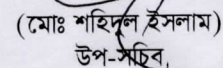 (মোঃ শহিদুল ইসলাম)
উপ-সচিব,